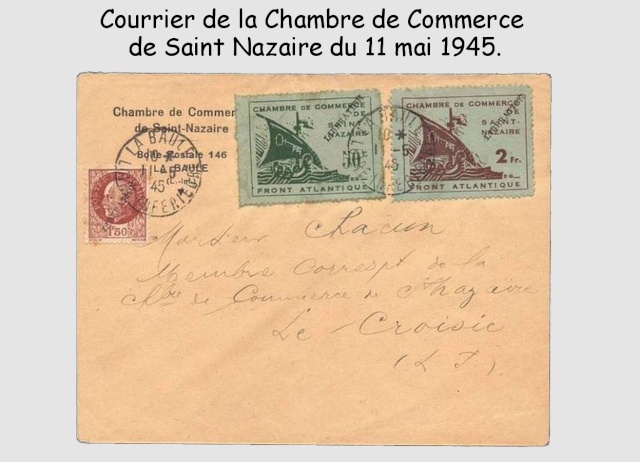 Courrier de la Chambre de Commerce
de Saint Nazaire du 11 mai 1945.
Chambre de Commer
de Saint-Nazaire
Boîte Postale 146
LA BAULE
LA BAULE
11-5
45
1F50
CHAMBRE DE COMMERCE
DE
SAINT
NAZAIRE
LIBERATION
50
FRONT ATLANTIQUE
CHAMBRE DE COMMERCE
DE
SAINT
NAZAIRE
LIBERATION
2 Fr.
FRONT ATLANTIQUE
LA BAULE
45
Monsieur Chacun
Membre Correspt de la
Chbre de Commerce de St Nazaire
Le Croisic
(L. I.)